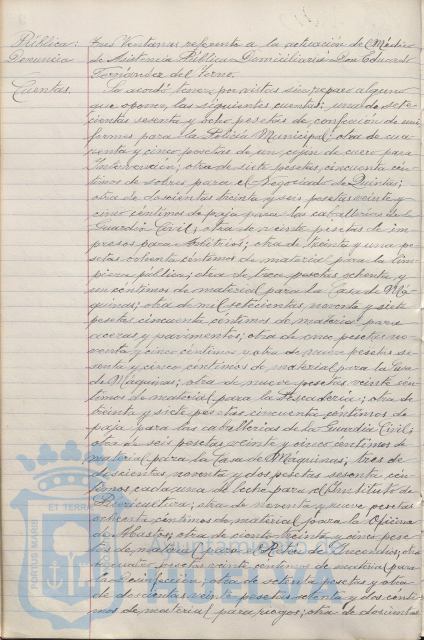 Pública:
Denuncia
Cuentas.
Tres Ventanas referente a la actuación de Médico
de Asistencia Pública Domiciliaria Don Eduardo
Fernández del Torno.
Se acordó tener por vistas sin reparo alguno
que oponer, las siguientes cuentas: una de sete-
cientas sesenta y ocho pesetas de confección de uni-
formes para la Policía Municipal; otra de cua-
renta y cinco pesetas de un cojín de cuero para
Intervención; otra de siete pesetas, cincuenta cén-
timos de sobres para el Negociado de Quintas;
otra de doscientas treinta y seis pesetas veinte y
cinco céntimos de paja para las caballerías de la
Guardia Civil; otra de veinte pesetas de im-
presos para Arbitrios; otra de treinta y una pe-
setas ochenta céntimos de material para la lim-
pieza pública; otra de trece pesetas ochenta y
un céntimos de material para la Casa de Má-
quinas; otra de mil setecientas noventa y siete
pesetas cincuenta céntimos de material para
aceras y pavimentos; otra de once pesetas no-
venta y cinco céntimos y otra de nueve pesetas se-
senta y cinco céntimos de material para la Casa
de Máquinas; otra de nueve pesetas veinte cén-
timos de material para la Pescadería; otra de
treinta y siete pesetas cincuenta céntimos de
paja para las caballerías de la Guardia Civil;
otra de seis pesetas veinte y cinco céntimos de
material para la Casa de Máquinas; tres de
doscientas noventa y dos pesetas sesenta cén-
timos, cada una de leche para el Instituto de
Puericultura; otra de noventa y nueve pesetas
ochenta céntimos de material para la Oficina
de Abastos; otra de ciento treinta y cinco pese-
tas de material para el Retén de Incendios; otra
de cuatro pesetas veinte céntimos de material para
la Desinfección; otra de setenta pesetas y otra
de doscientas veinte pesetas setenta y dos cénti-
mos de material para riegos; otra de doscientas
PORTUS ILLICIS
ET TERRA
Ayuntamiento de